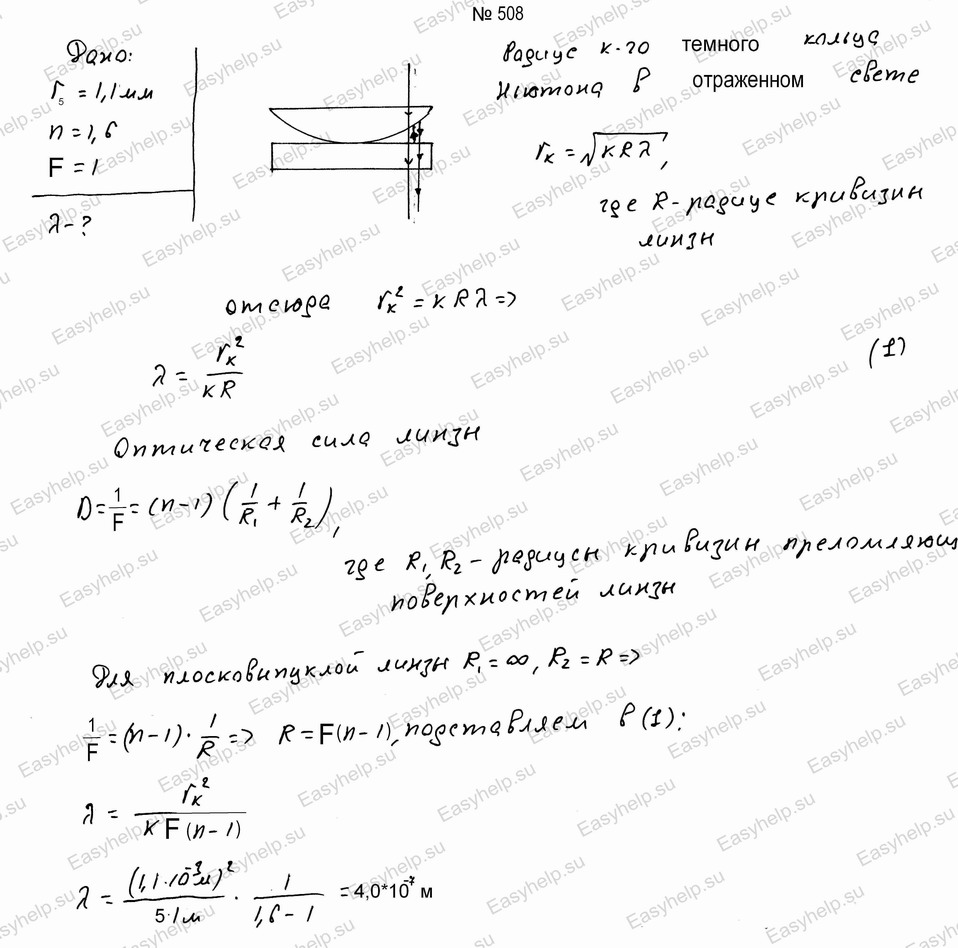 № 508
Дано:
r₅ = 1,1 мм
n = 1,6
F = 1
λ - ?
Радиус к-го темного кольца
Ньютона в отраженном свете
rₖ = √кRλ,
где R - радиус кривизн
линзы
отсюда rₖ² = к R λ =>
λ = rₖ² / кR (1)
Оптическая сила линзы
D = 1/F = (n-1) (1/R₁ + 1/R₂),
где R₁, R₂ - радиусы кривизн преломляющ
поверхностей линзы
Для плосковипуклой линзы R₁ = ∞, R₂ = R =>
1/F = (n-1) · 1/R => R = F(n-1), подставляем в (1):
λ = rₖ² / к F (n-1)
λ = (1,1·10⁻³м)² / 5·1м · 1 / 1,6-1 = 4,0*10⁻⁷ м
Easyhelp.su